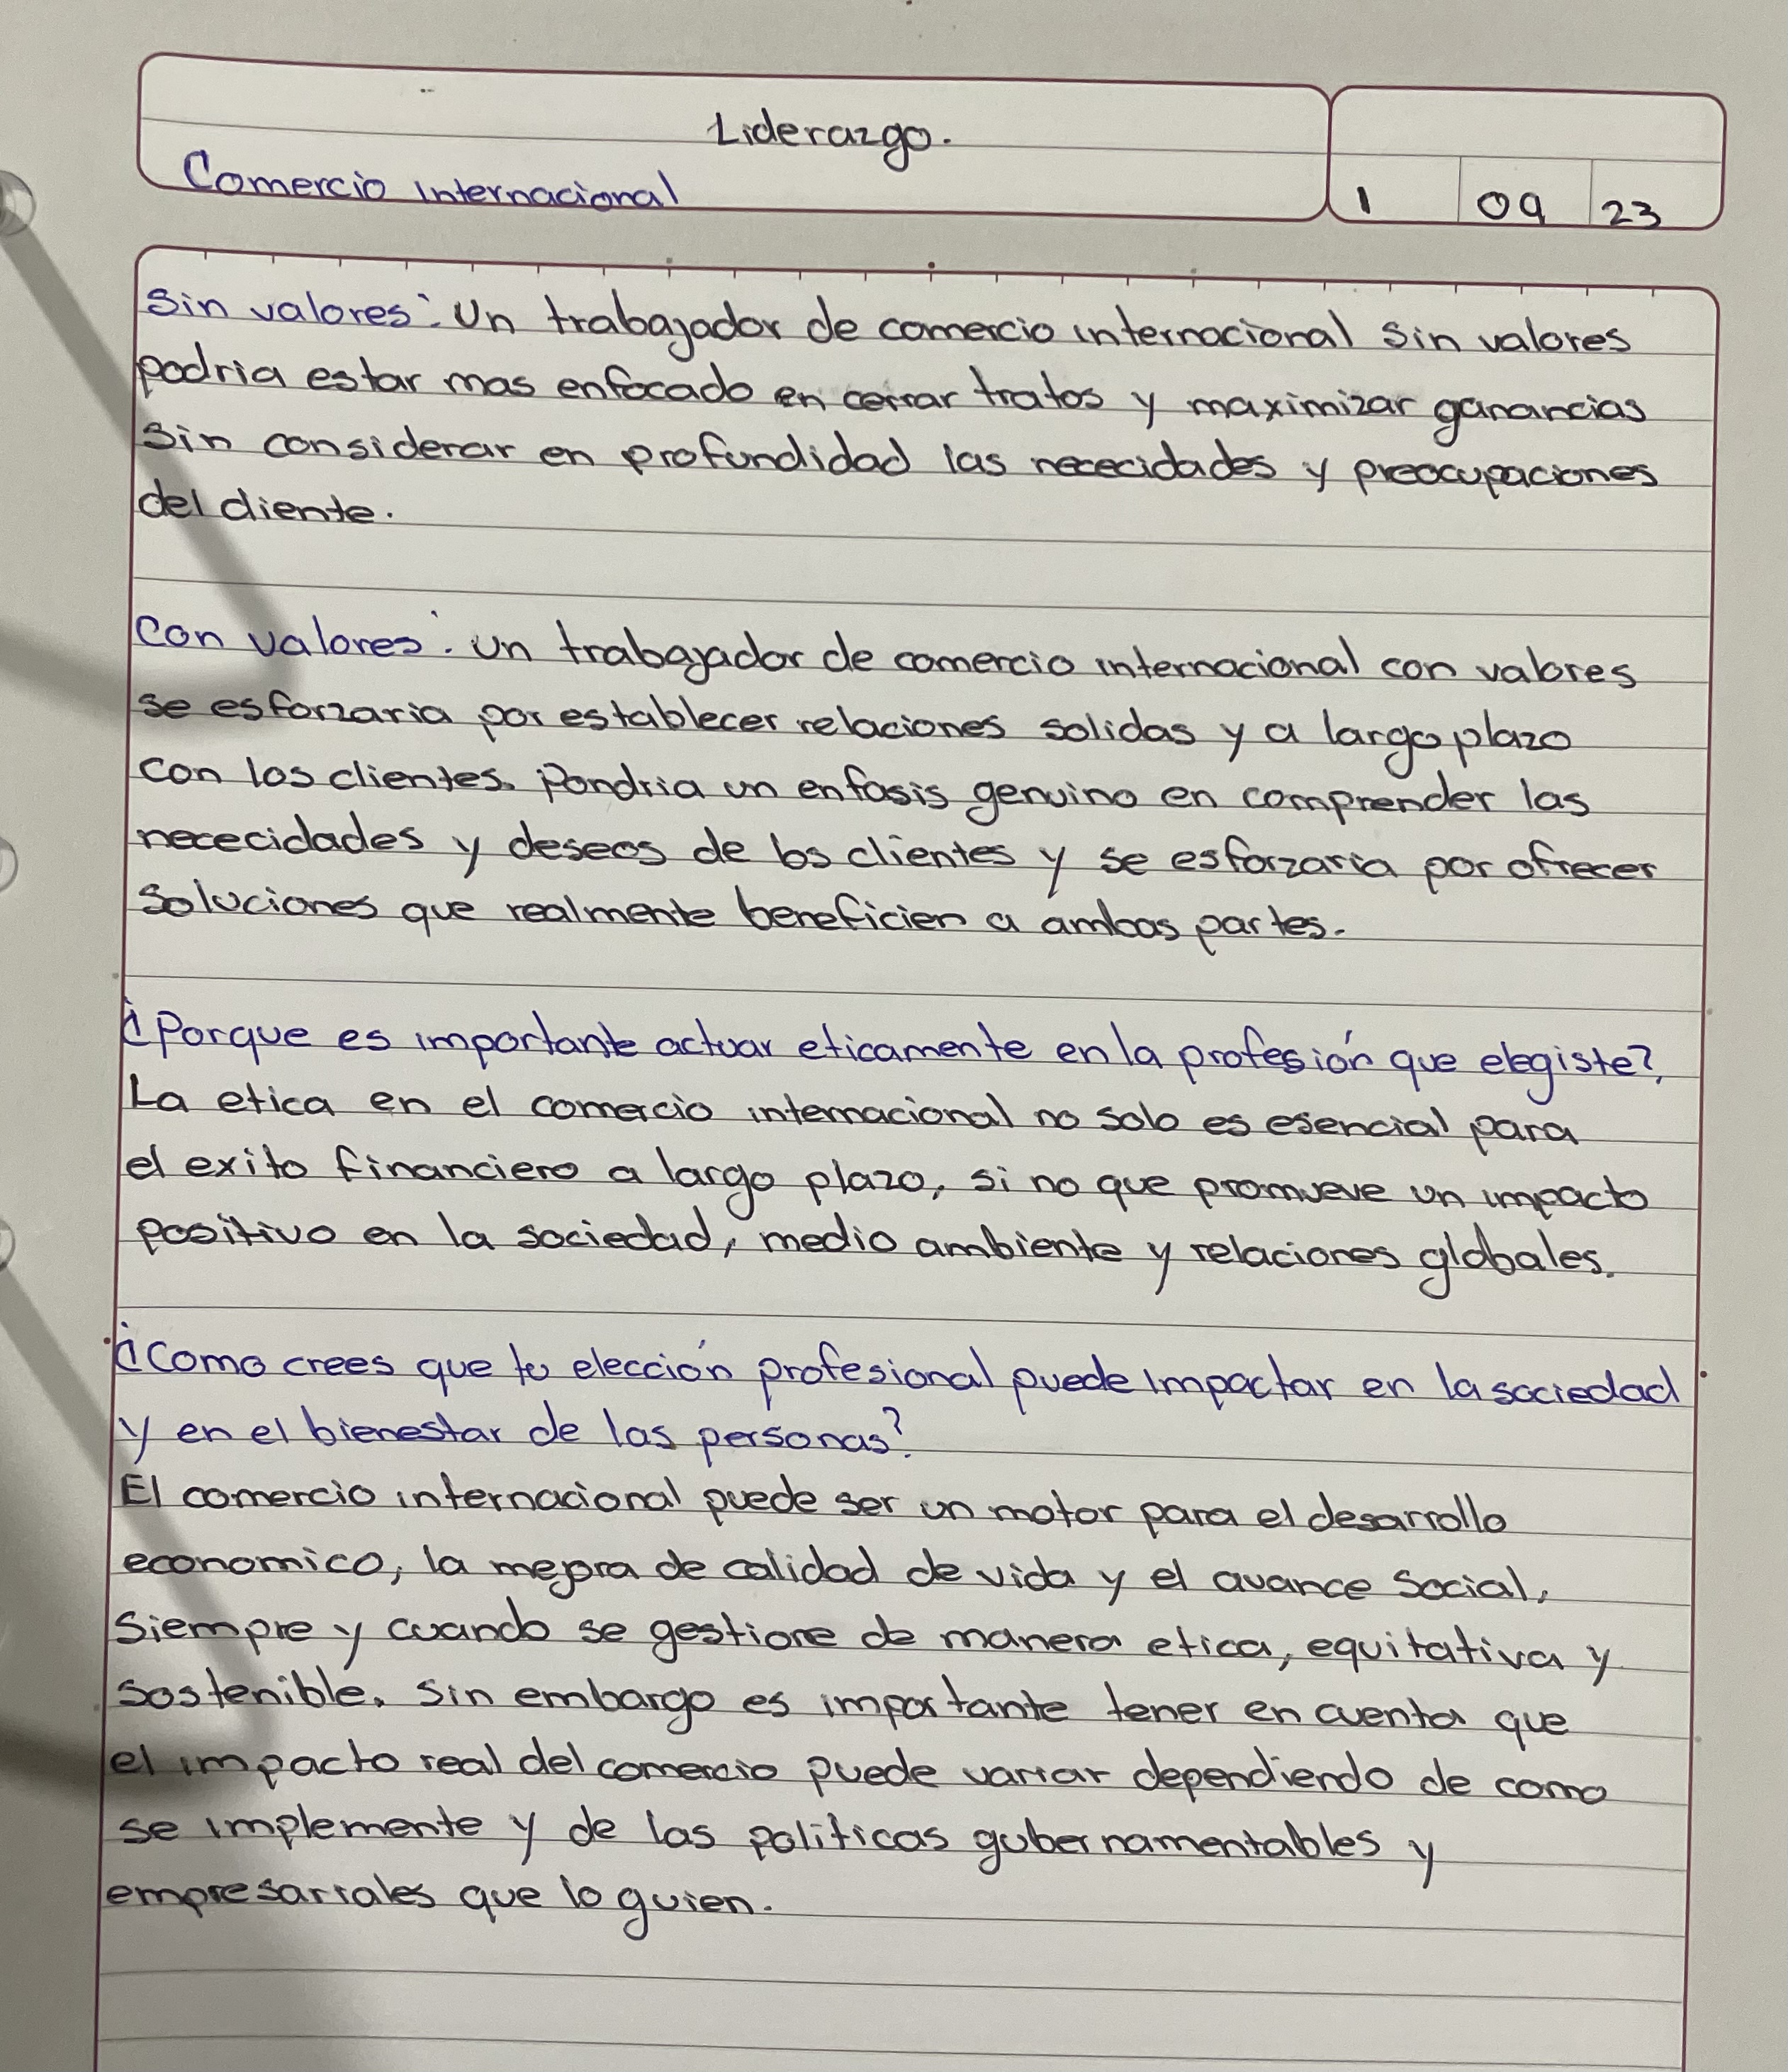 Liderazgo.
Comercio internacional
1 09 23
Sin valores: Un trabajador de comercio internacional sin valores
podria estar mas enfocado en cerrar tratos y maximizar ganancias
sin considerar en profundidad las nececidades y preocupaciones
del cliente.
Con valores: un trabajador de comercio internacional con valores
se esforzaria por establecer relaciones solidas y a largo plazo
con los clientes. Pondria un enfasis genuino en comprender las
nececidades y deseos de los clientes y se esforzaria por ofrecer
soluciones que realmente beneficien a ambas partes.
¿Porque es importante actuar eticamente en la profesión que elegiste?
La etica en el comercio internacional no solo es esencial para
el exito financiero a largo plazo, si no que promueve un impacto
positivo en la sociedad, medio ambiente y relaciones globales.
¿Como crees que tu elección profesional puede impactar en la sociedad
y en el bienestar de las personas?
El comercio internacional puede ser un motor para el desarrollo
economico, la mejora de calidad de vida y el avance social,
siempre y cuando se gestione de manera etica, equitativa y
sostenible. Sin embargo es importante tener en cuenta que
el impacto real del comercio puede variar dependiendo de como
se implemente y de las politicas gubernamentables y
empresariales que lo guien.